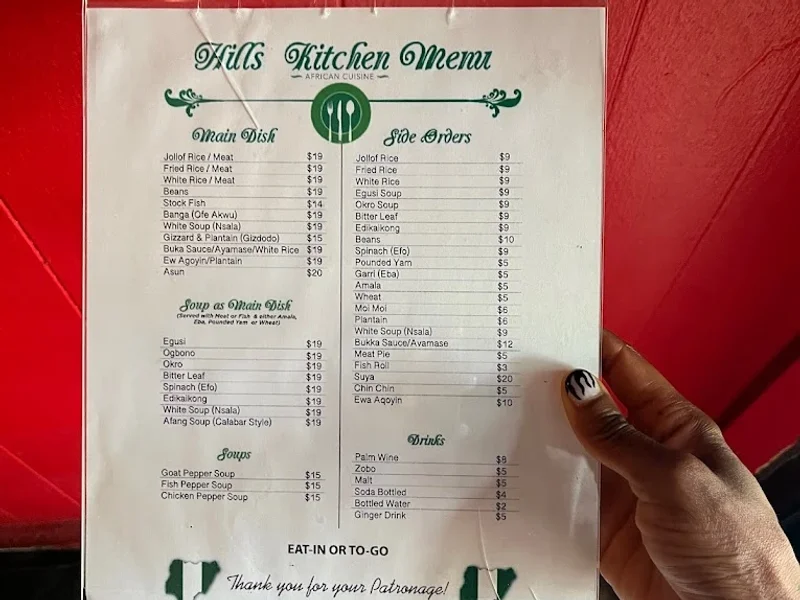 Hills Kitchen Menu
AFRICAN CUISINE
Main Dish
Jollof Rice / Meat $19
Fried Rice / Meat $19
White Rice / Meat $19
Beans $19
Stock Fish $14
Banga (Ofe Akwu) $19
White Soup (Nsala) $19
Gizzard & Plantain (Gizdodo) $15
Buka Sauce/Ayamase/White Rice $19
Ew Agoyin/Plantain $19
Asun $20
Soup as Main Dish
(Served with Meat or Fish & either Amala,
Eba, Pounded Yam or Wheat)
Egusi $19
Ogbono $19
Okro $19
Bitter Leaf $19
Spinach (Efo) $19
Edikaikong $19
White Soup (Nsala) $19
Afang Soup (Calabar Style) $19
Soups
Goat Pepper Soup $15
Fish Pepper Soup $15
Chicken Pepper Soup $15
Side Orders
Jollof Rice $9
Fried Rice $9
White Rice $9
Egusi Soup $9
Okro Soup $9
Bitter Leaf $9
Edikaikong $9
Beans $10
Spinach (Efo) $9
Pounded Yam $5
Garri (Eba) $5
Amala $5
Wheat $5
Moi Moi $6
Plantain $6
White Soup (Nsala) $9
Bukka Sauce/Avamase $12
Meat Pie $5
Fish Roll $3
Suya $20
Chin Chin $5
Ewa Aqoyin $10
Drinks
Palm Wine $8
Zobo $5
Malt $5
Soda Bottled $4
Bottled Water $2
Ginger Drink $5
EAT-IN OR TO-GO
Thank you for your Patronage!